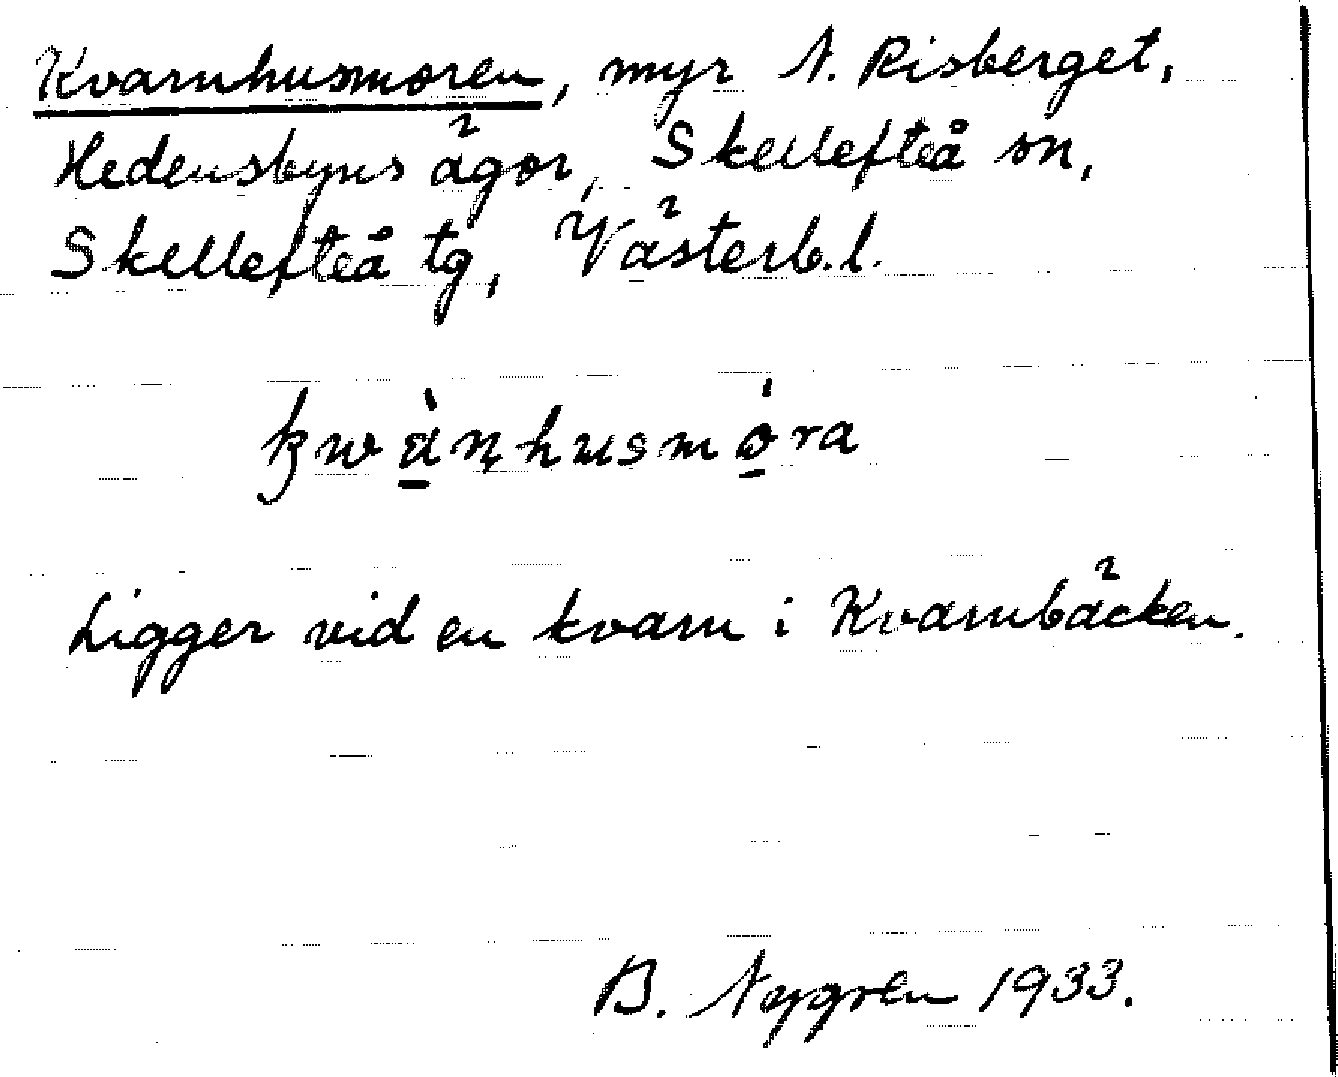 Kvarnhusmoren, myr N. Risberget,
Hedensbyns ägor, Skellefteå sn,
Skellefteå tg, Västerb.l.
kwànhusmóra
Ligger vid en kvarn i Kvarnbäcken.
B. Nygren 1933.